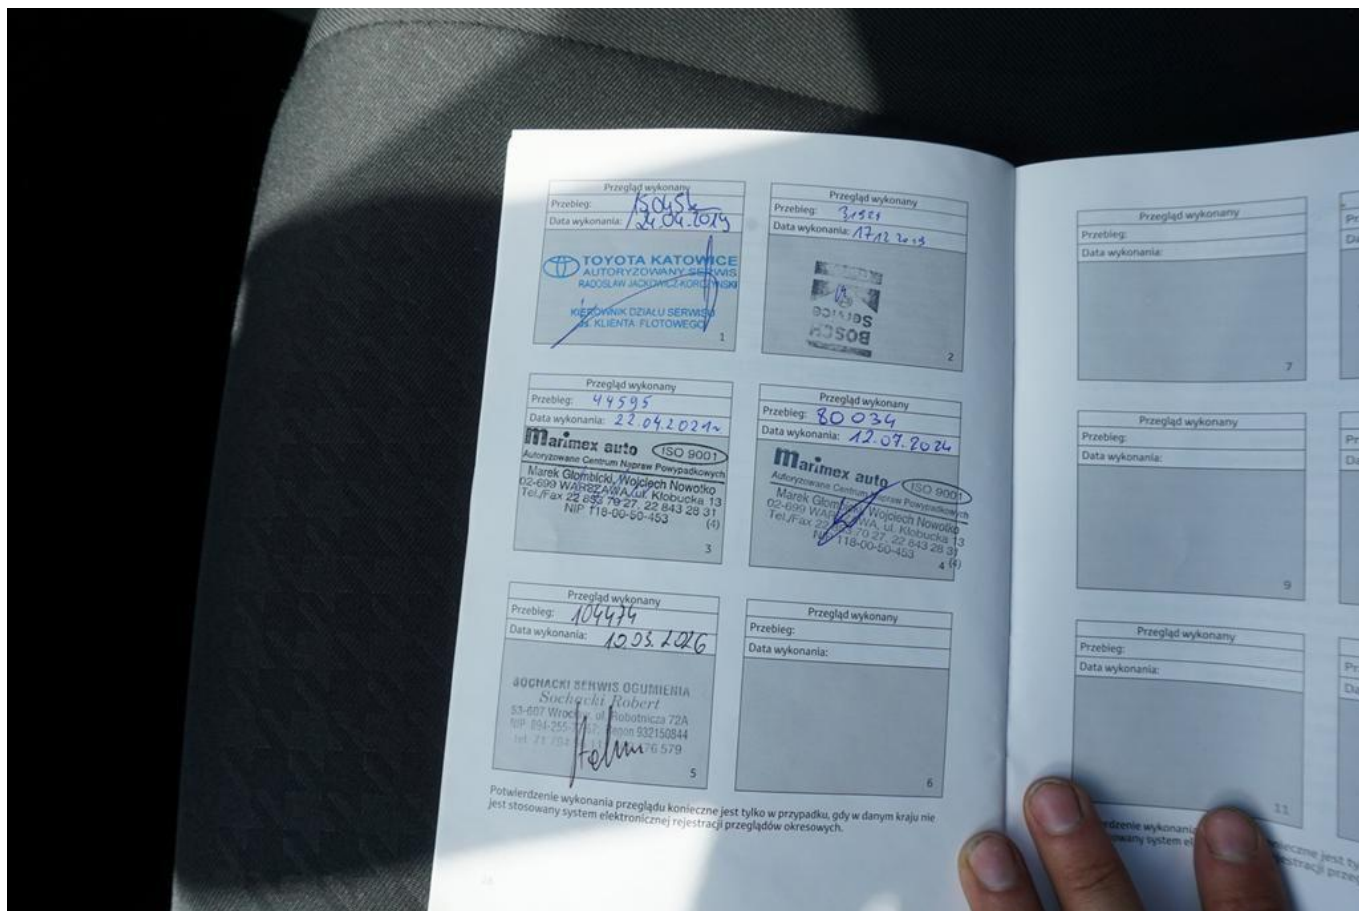 Przegląd wykonany
Przebieg: 15045k
Data wykonania: 24.04.2019
TOYOTA KATOWICE
AUTORYZOWANY SERWIS
RADOSŁAW JACKOWICZ-KORCZYŃSKI
KIEROWNIK DZIAŁU SERWISU
ds. KLIENTA FLOTOWEGO
1
Przegląd wykonany
Przebieg: 31521
Data wykonania: 17.12.2019
Service
BOSCH
2
Przegląd wykonany
Przebieg: 44595
Data wykonania: 22.04.2021r
Marimex auto ISO 9001
Autoryzowane Centrum Napraw Powypadkowych
Marek Głombicki, Wojciech Nowotko
02-699 WARSZAWA, ul. Kłobucka 13
Tel./Fax 22 853 70 27, 22 843 28 31
NIP 118-00-50-453 (4)
3
Przegląd wykonany
Przebieg: 80034
Data wykonania: 12.07.2024
Marimex auto ISO 9001
Autoryzowane Centrum Napraw Powypadkowych
Marek Głombicki, Wojciech Nowotko
02-699 WARSZAWA, ul. Kłobucka 13
Tel./Fax 22 853 70 27, 22 843 28 31
NIP 118-00-50-453 (4)
4
Przegląd wykonany
Przebieg: 104474
Data wykonania: 10.03.2026
SOCHACKI SERWIS OGUMIENIA
Sochacki Robert
53-607 Wrocław, ul. Robotnicza 72A
Regon 932150844
76 579
5
Przegląd wykonany
Przebieg:
Data wykonania:
6
Potwierdzenie wykonania przeglądu konieczne jest tylko w przypadku, gdy w danym kraju nie
jest stosowany system elektronicznej rejestracji przeglądów okresowych.
Przegląd wykonany
Przebieg:
Data wykonania:
7
Przegląd wykonany
Przebieg:
Data wykonania:
9
Przegląd wykonany
Przebieg:
Data wykonania:
11
wykonania
system
jest